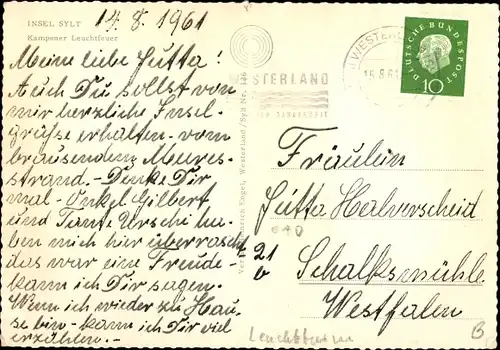 14.8.1961
INSEL SYLT
Kampener Leuchtfeuer
Meine liebe Jutta!
Auch Du sollst von
mir herzliche Insel-
grüße erhalten - vom
brausendem Meeres-
strand. - Denke Dir
mal - Onkel Gilbert
und Tante Urschi ha-
ben mich hier überrascht
das war eine Freude -
kann ich Dir sagen.
Wenn ich wieder zu Hau-
se bin - kann ich Dir viel
erzählen. -
Heinrich Engel, Westerland/Sylt Nr.
WESTERLAND
15.8.61
DEUTSCHE BUNDESPOST
10
Fräulein
Jutta Halverscheid
21
b
Schalksmühle
Westfalen
Leuchtturm
B